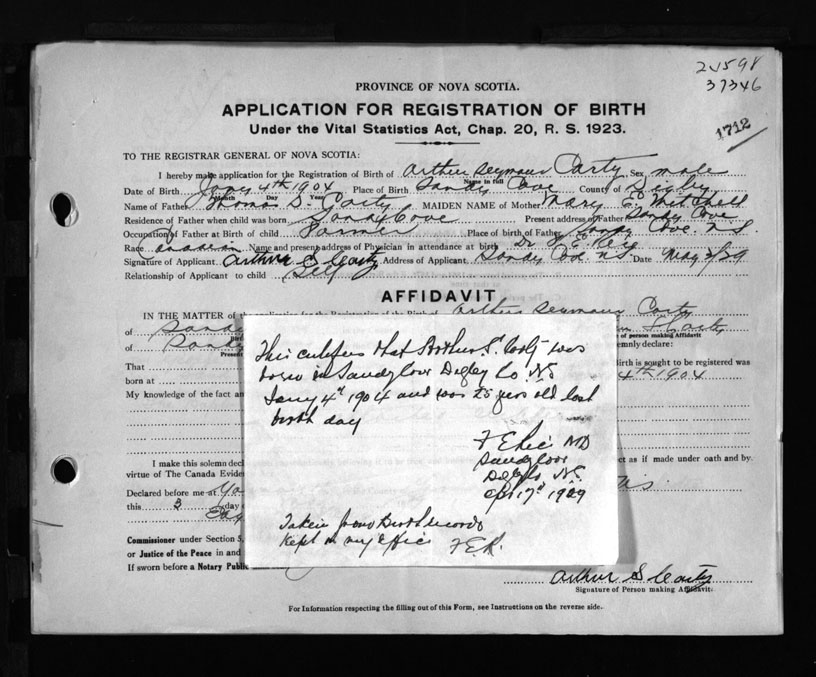 2J598
37346
1712
PROVINCE OF NOVA SCOTIA.
APPLICATION FOR REGISTRATION OF BIRTH
Under the Vital Statistics Act, Chap. 20, R. S. 1923.
TO THE REGISTRAR GENERAL OF NOVA SCOTIA:
I hereby make application for the Registration of Birth of Arthur Seymour Carty Sex male
Name in full
Date of Birth Jany 4th 1904 Place of Birth Sandy Cove County of Digby
Month Day Year
Name of Father Thomas D. Carty MAIDEN NAME of Mother Mary E.
Residence of Father when child was born Sandy Cove Present address of Father Sandy Cove
Occupation of Father at Birth of child Farmer Place of birth of Father Sandy Cove N.S.
Race Canadian Name and present address of Physician in attendance at birth Dr F. E. Rice
Signature of Applicant Arthur S Carty Address of Applicant Sandy Cove N.S. Date May 3/29
Relationship of Applicant to child Self
AFFIDAVIT
IN THE MATTER of Arthur Seymour Carty
of Sandy
of person making Affidavit
of Sandy emnly declare:
Present
That Birth is sought to be registered was
born at 4th 1904
My knowledge of the fact an
I make this solemn decl ct as if made under oath and by
virtue of The Canada Evide
Declared before me at
this 3 day
Commissioner under Section 5,
or Justice of the Peace in and
If sworn before a Notary Publi
This certifies that Arthur S. Carty was
born in Sandy Cove Digby Co. N.S.
Jany 4th 1904 and was 25 years old last
birth day
F E Rice MD
Sandy Cove
Digby Co N.S.
Apr 17th 1929
Taken from Birth records
Kept in my office F.E.R.
Arthur S Carty
Signature of Person making Affidavit.
For Information respecting the filling out of this Form, see Instructions on the reverse side.